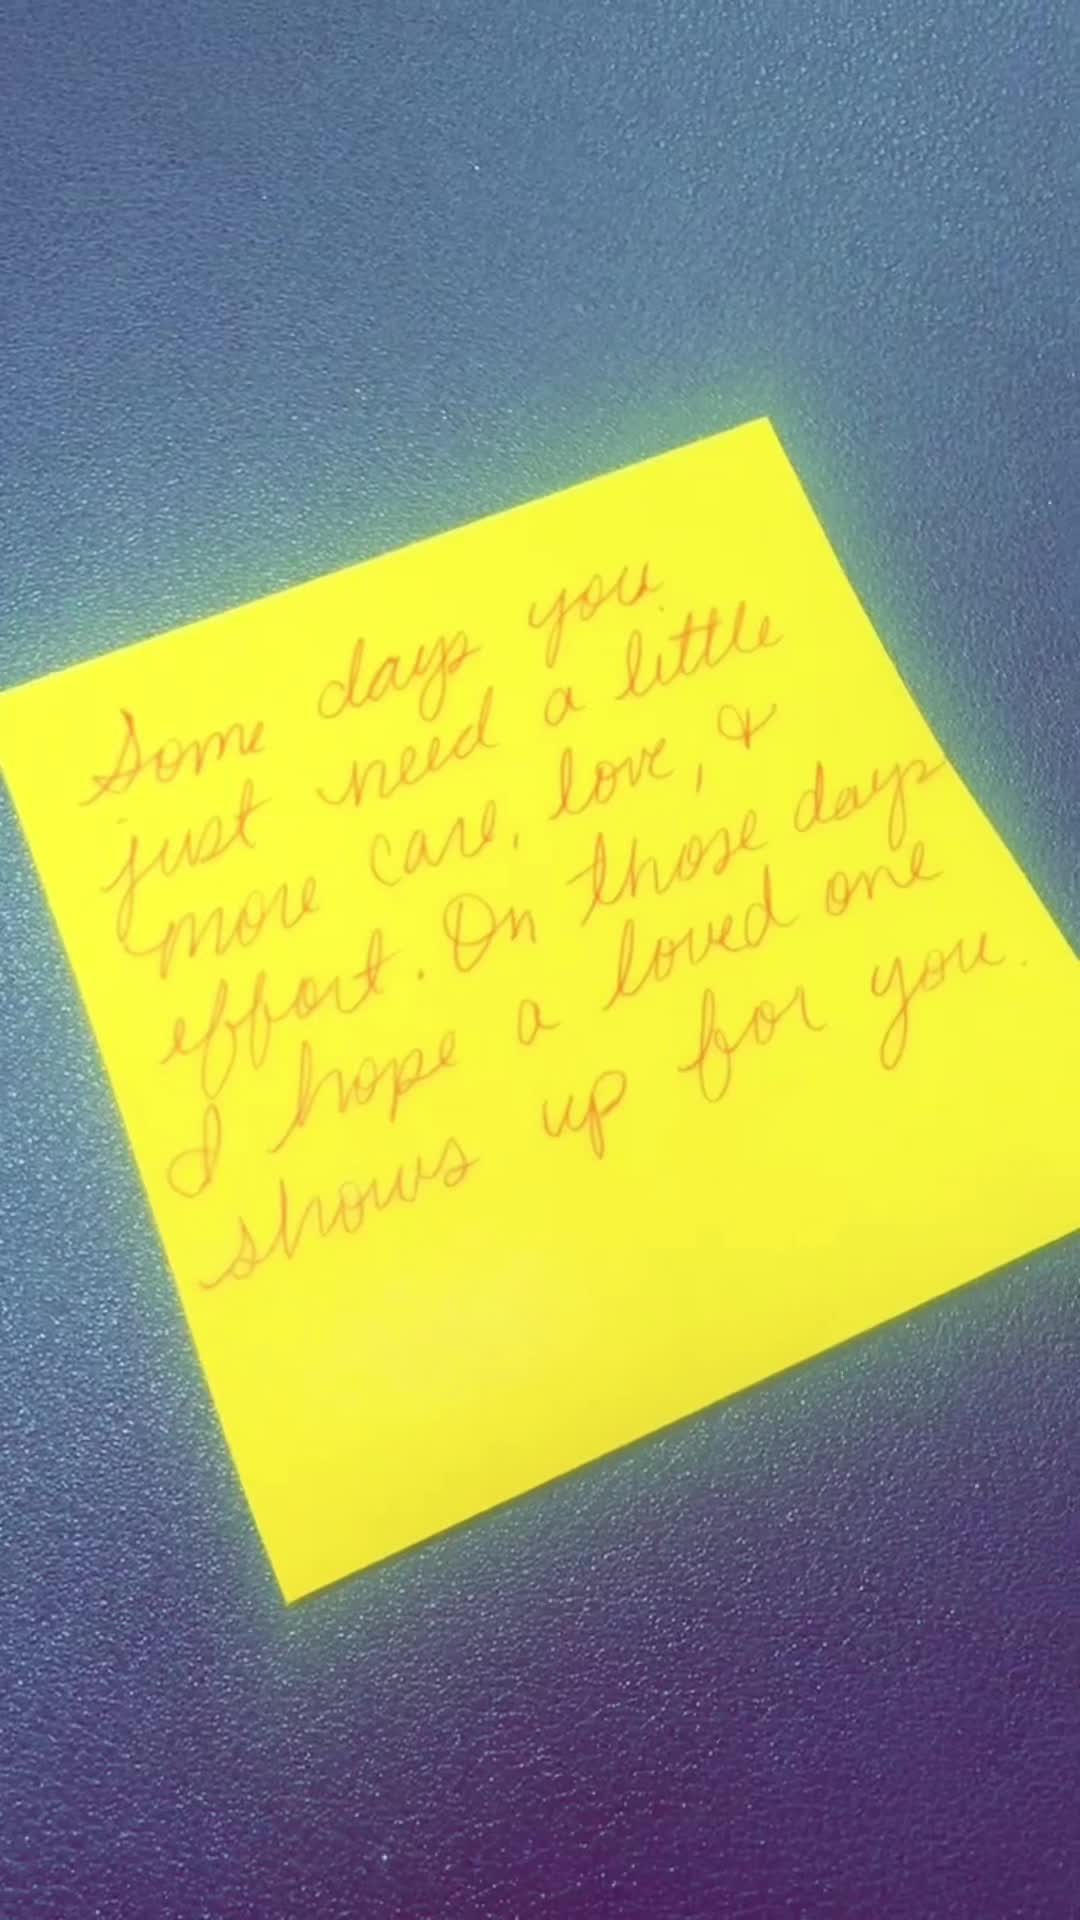 Some days you
just need a little
more care, love, &
effort. On those days
I hope a loved one
shows up for you.